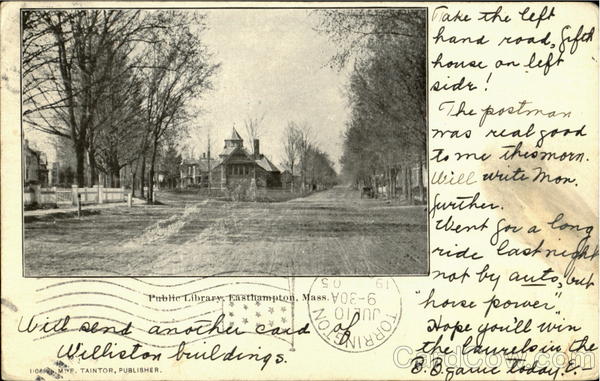 Take the left
hand road, fifth
house on left
side!
The postman
was real good
to me this morn.
Will write Mon.
further.
Went for a long
ride last night
not by auto, but
"horse power".
Hope you'll win
the laurels in the
B.B. game today. E.-
Public Library, Easthampton, Mass.
TORRINGTON
JUL 10
9-30A
19 05
Will send another card of
Williston buildings.
TAINTOR, PUBLISHER.
CardCow.com